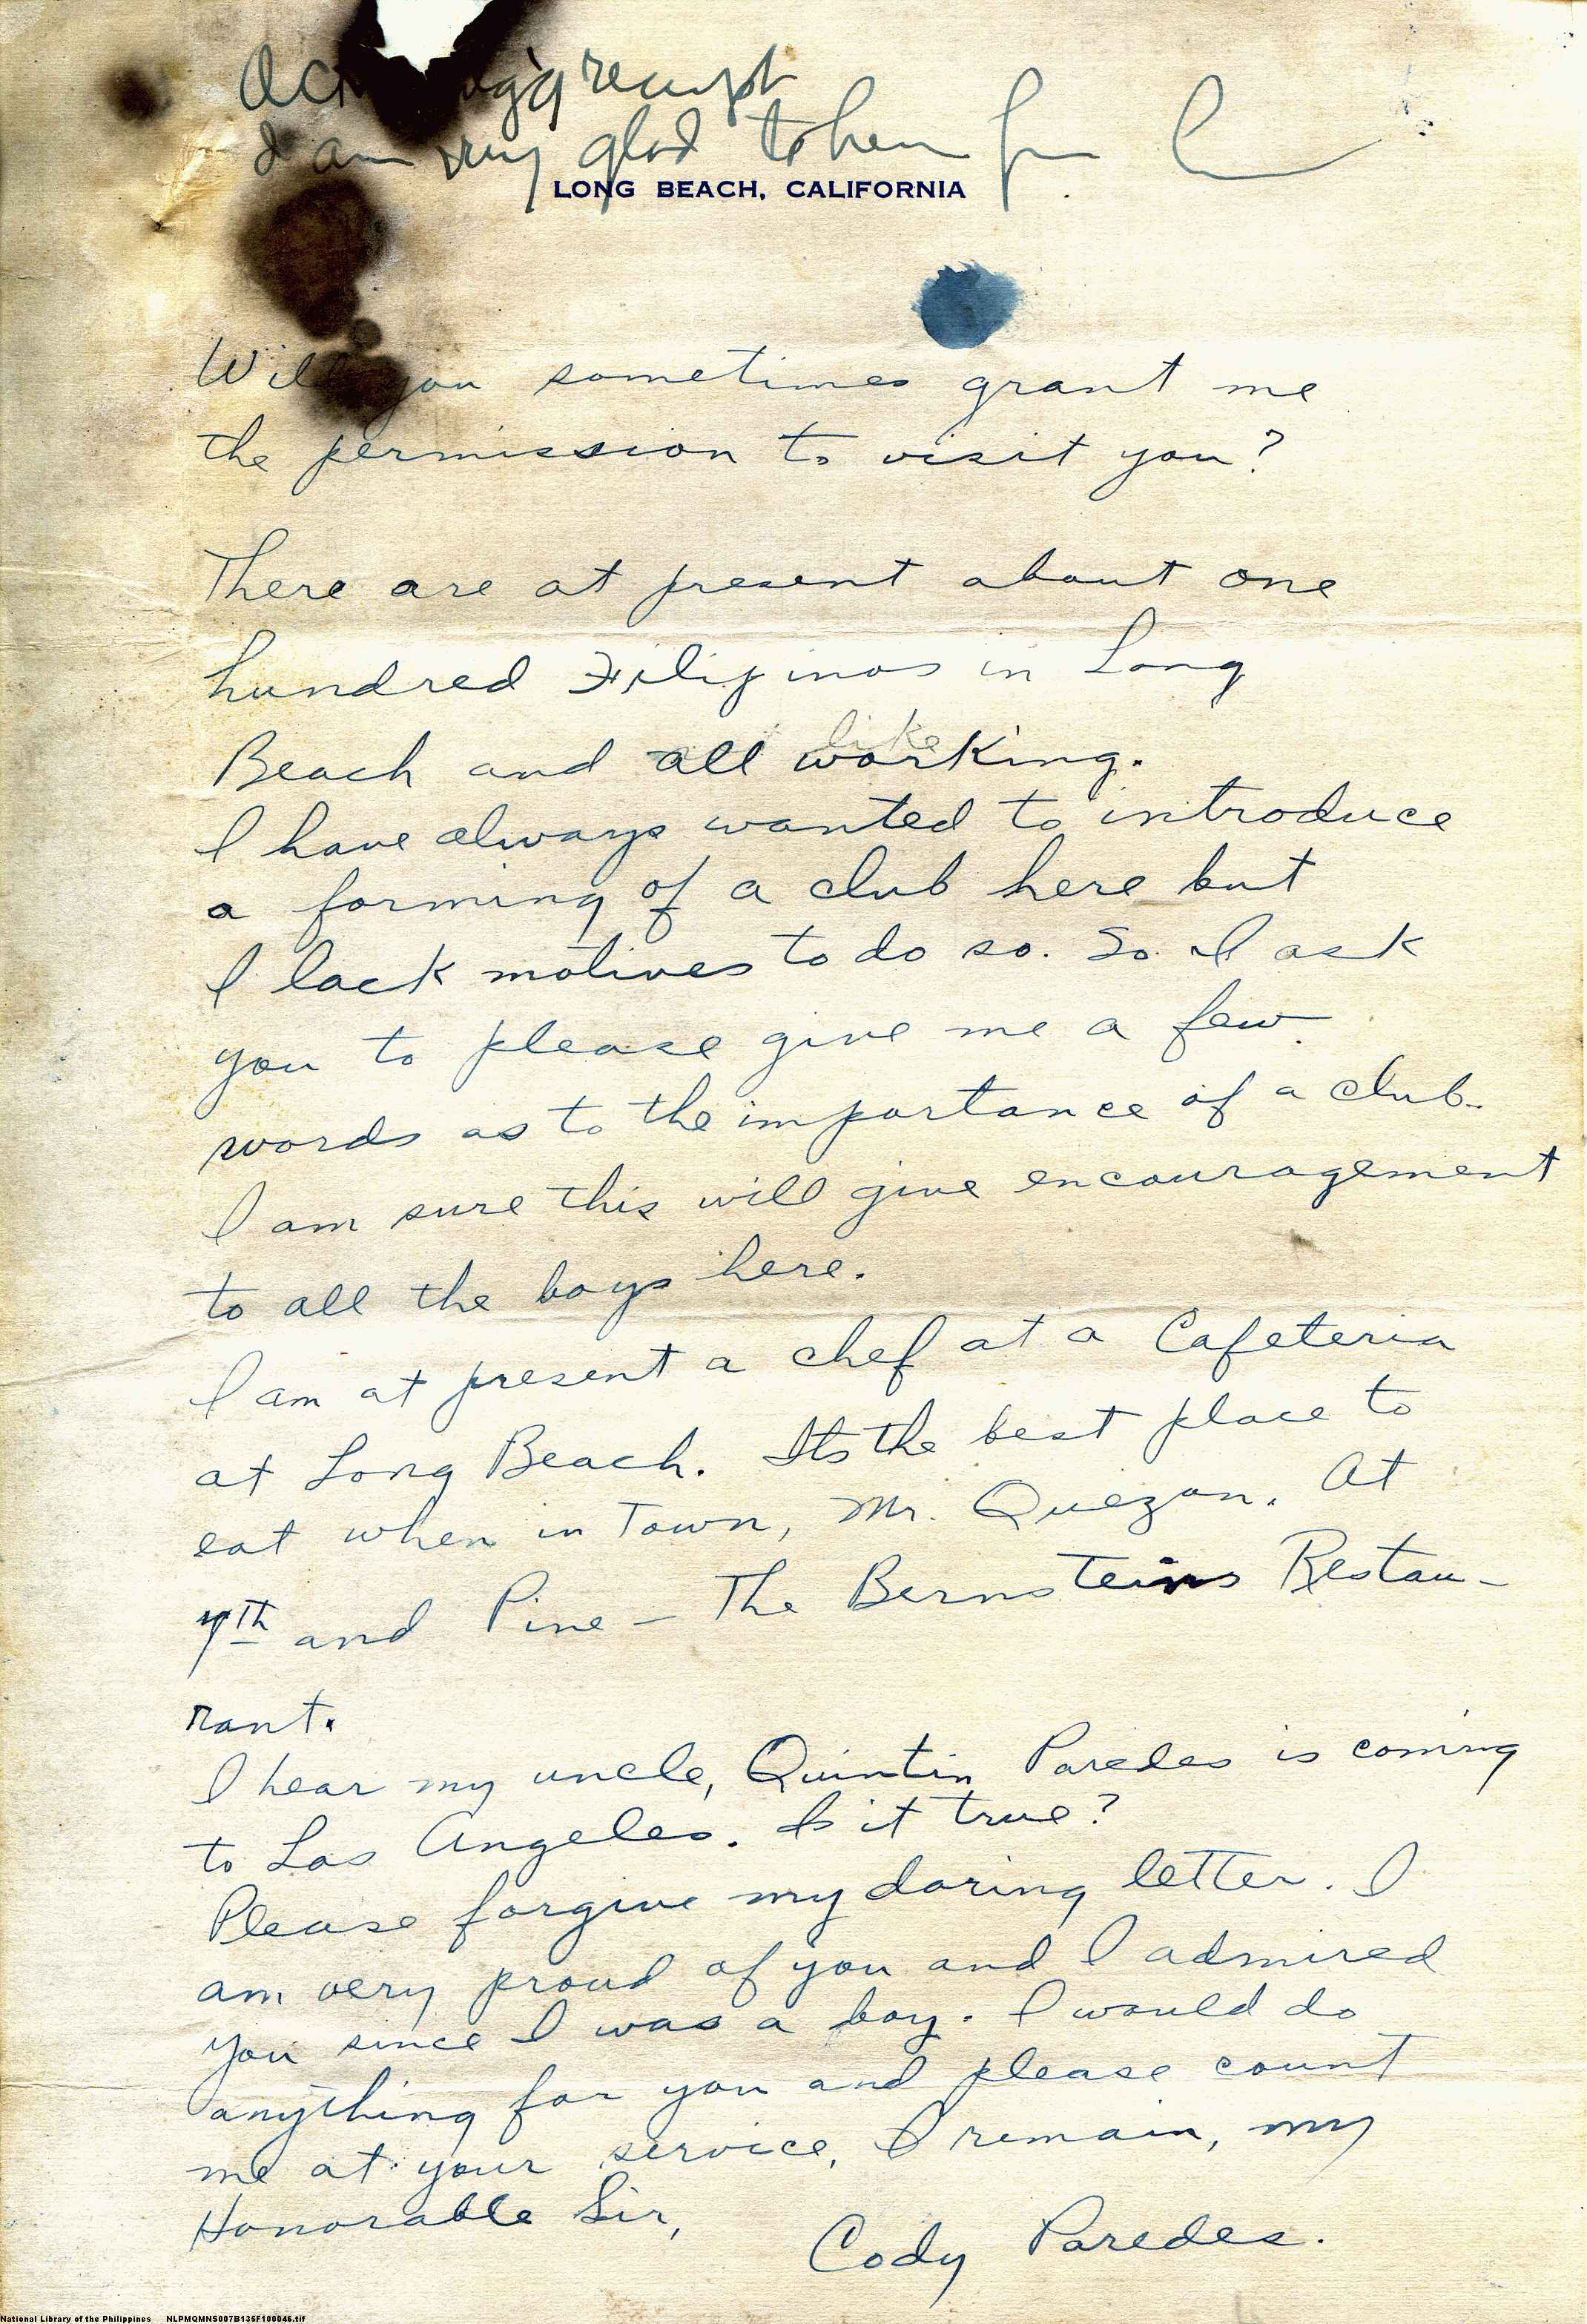 receipt
I am very glad to hear from
LONG BEACH, CALIFORNIA
Will you sometimes grant me
the permission to visit you?
There are at present about one
hundred Filipinos in Long
like
Beach and all working.
I have always wanted to introduce
a forming of a club here but
I lack motives to do so. So I ask
you to please give me a few
words as to the importance of a club.
I am sure this will give encouragement
to all the boys here.
I am at present a chef at a Cafeteria
at Long Beach. Its the best place to
eat when in Town, Mr. Quezon. At
7th and Pine – The Bernsteins Restau-
rant.
I hear my uncle, Quintin Paredes is coming
to Los Angeles. Is it true?
Please forgive my daring letter. I
am very proud of you and I admired
you since I was a boy. I would do
anything for you and please count
me at your service, I remain, my
Honorable Sir,
Cody Paredes.
National Library of the Philippines NLPMQMNS007B135F100046.tif